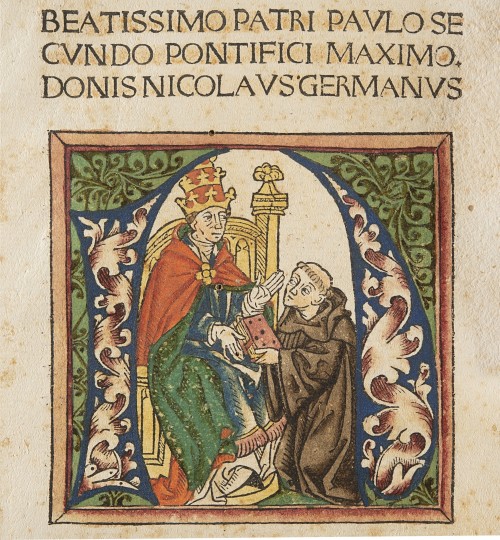 BEATISSIMO PATRI PAVLO SE
CVNDO PONTIFICI MAXIMO.
DONIS NICOLAVS GERMANVS